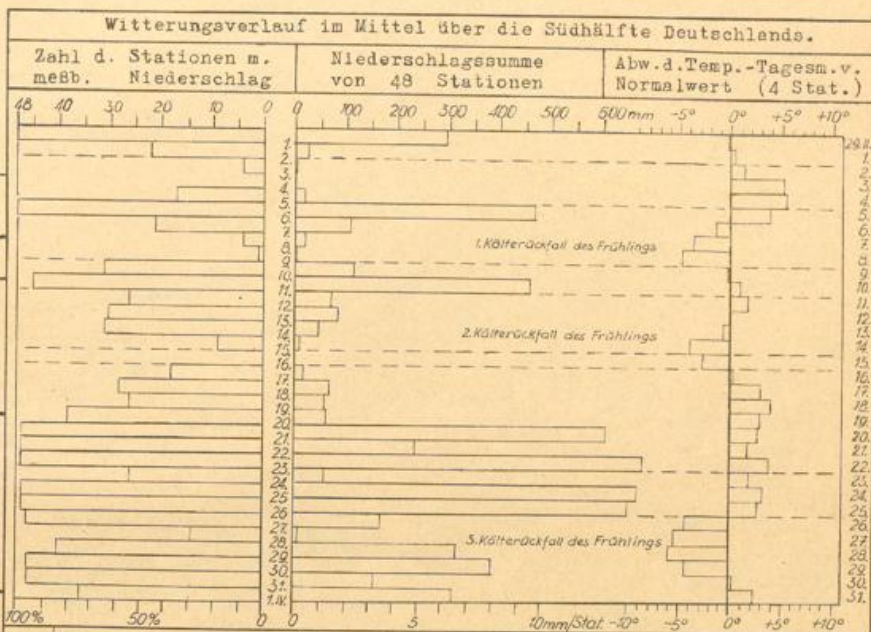 Witterungsverlauf im Mittel über die Südhälfte Deutschlands.
Zahl d. Stationen m.
meßb. Niederschlag
Niederschlagssumme
von 48 Stationen
Abw.d.Temp.-Tagesm.v.
Normalwert (4 Stat.)
48 40 30 20 10 0
0 100 200 300 400 500 600mm
-5° 0° +5° +10°
1.
2.
3.
4.
5.
6.
7.
8.
9.
10.
11.
12.
13.
14.
15.
16.
17.
18.
19.
20.
21.
22.
23.
24.
25.
26.
27.
28.
29.
30.
31.
1.IV.
1.Kälterückfall des Frühlings
2.Kälterückfall des Frühlings
3.Kälterückfall des Frühlings
1.
2.
3.
4.
5.
6.
7.
8.
9.
10.
11.
12.
13.
14.
15.
16.
17.
18.
19.
20.
21.
22.
23.
24.
25.
26.
27.
28.
29.
30.
31.
100% 50% 0
0 5 10mm/Stat.
-10° -5° 0° +5° +10°